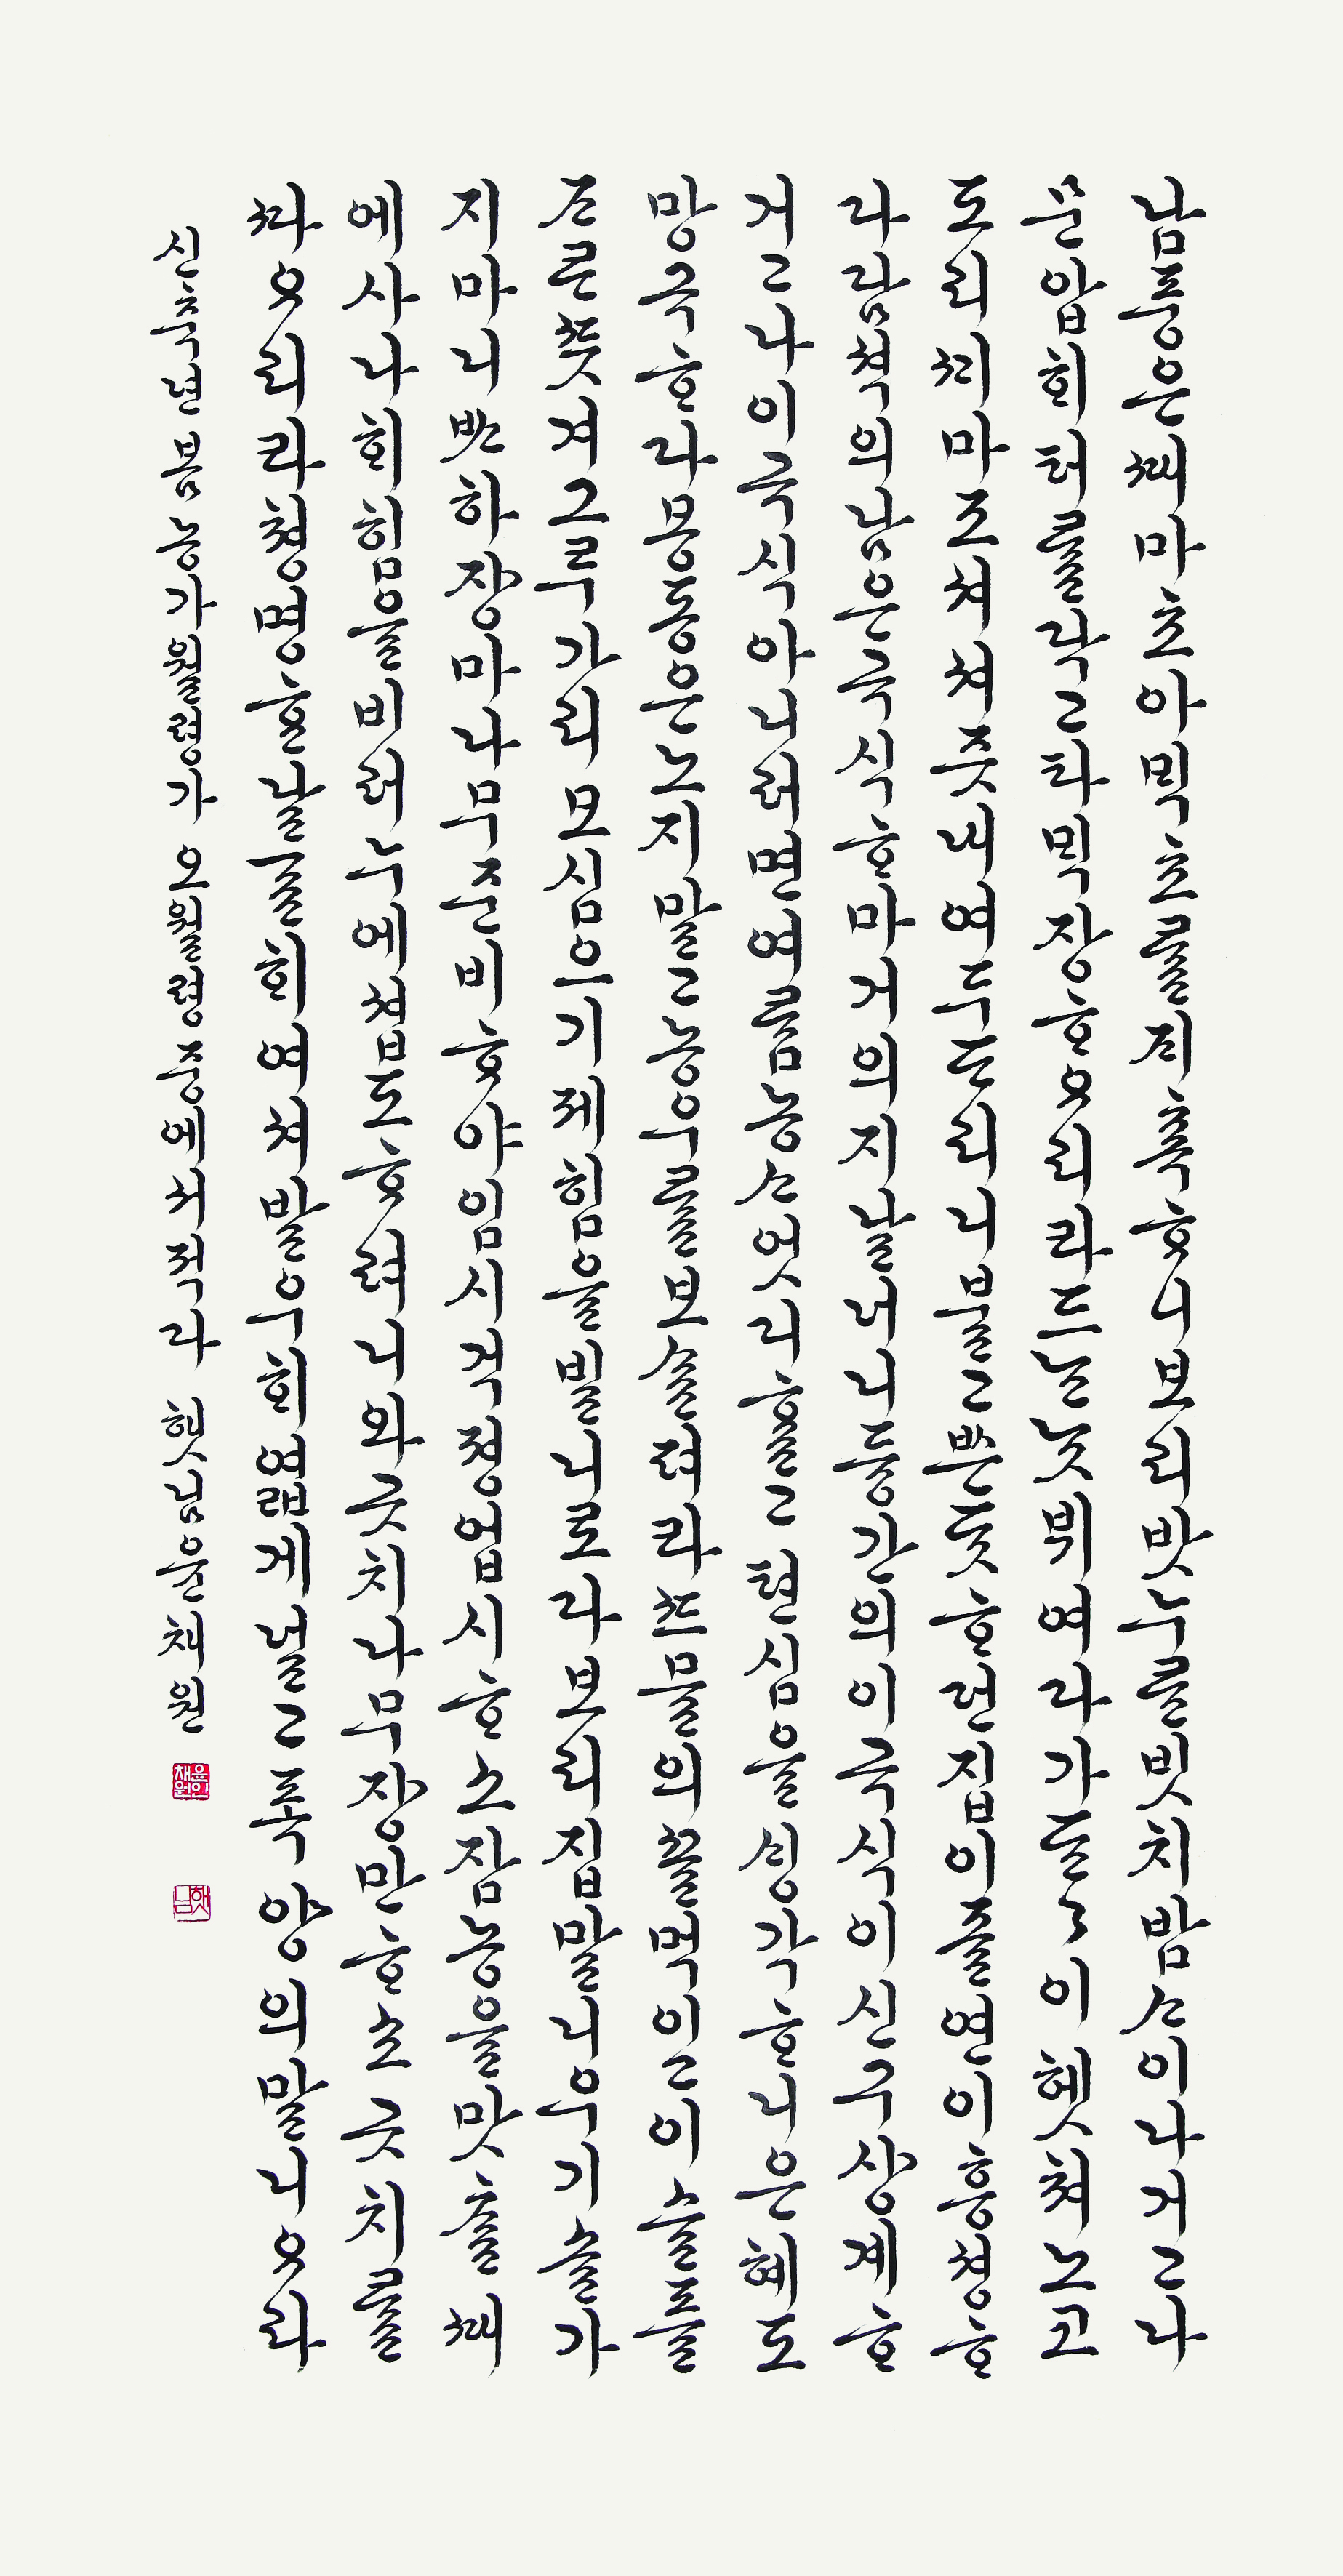 남풍은ᄯᆡ마초아ᄆᆡᆨ초ᄅᆞᆯᄌᆡ촉ᄒᆞ니보리밧누른빗치밤ᄉᆞ이나거고나
문압희터ᄅᆞᆯ닥고타ᄆᆡᆨ장ᄒᆞ오리라드ᄂᆞᆫ낫뷔여다가든든이헷쳐노고
도리ᄭᆡ마조셔셔즛내여두드리니불고쁜듯ᄒᆞ던집이졸연이흥셩ᄒᆞ
다담셕의남은곡식ᄒᆞ마거의지날너니듕간의이곡식이신구상계ᄒᆞ
거고나이곡식아니러면여름농ᄉᆞ엇디ᄒᆞᆯ고텬심을ᄉᆡᆼ각ᄒᆞ니은혜도
망극ᄒᆞ다목동은노지말고농우ᄅᆞᆯ보ᄉᆞᆯ펴라ᄯᅳ믈의ᄭᅩᆯ먹이고이슬플
ᄯᅳᆺ겨그루가리모심으기제힘을빌니로다보리집말니우기솔가
지마니ᄡᅡ하장마나무준비ᄒᆞ야임시걱졍업시ᄒᆞ소잠농을맛ᄎᆞᆯᄯᆡ
에사나희힘을비러누에셥도ᄒᆞ려니와곳치나무장만ᄒᆞ소곳치ᄅᆞᆯ
ᄯᅡ오리라쳥명ᄒᆞᆫ날ᄀᆞᆯ희여셔발우희엷게널고폭양의말니오라
신축년봄 농가월령가 오월령중에서적다 햇님윤채원
윤채원
햇님